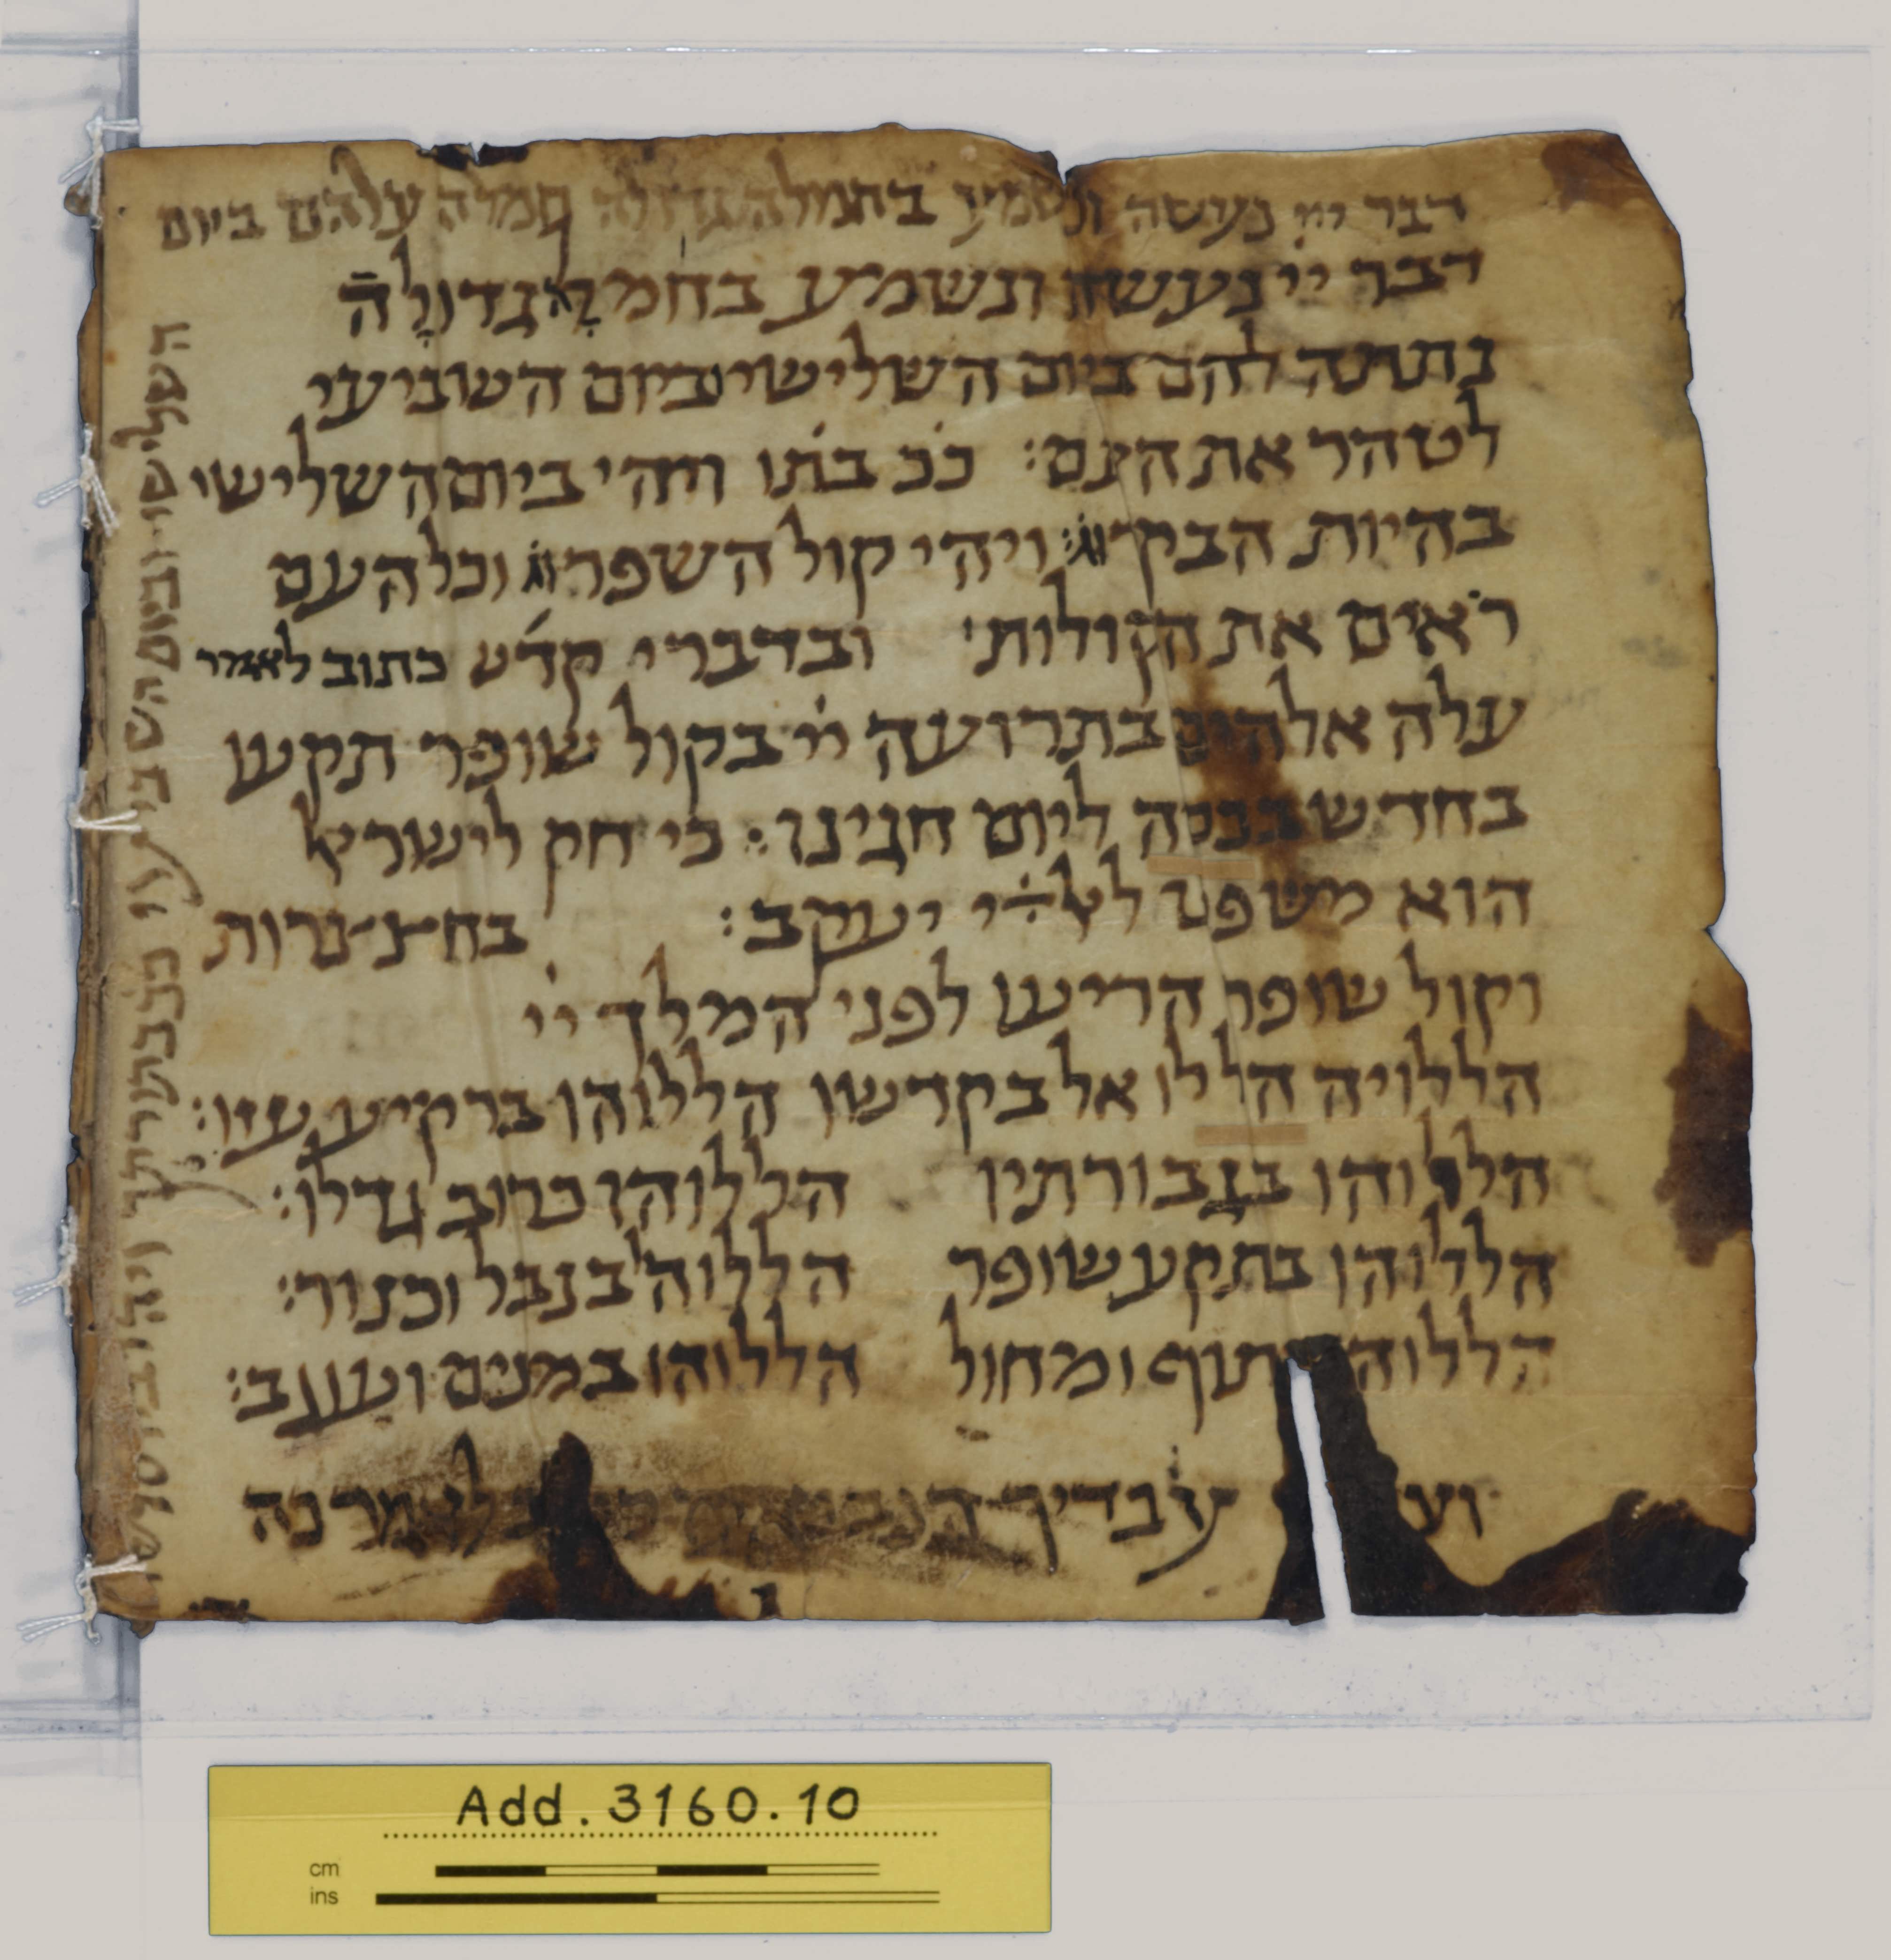 דבר ייי נעשה ונשמע בחמלה גדולה חמלה עלהם ביום
דבר ייי נעשה ונשמע בחמלא גדולה
נתתה להם ביום השלישי וביום השביעי
לטהר את העם: ככ בתו ויהי ביום השלישי
בהיות הבקר וג: ויהי קול השפר וג וכל העם
ראים את הקולות׃ ובדברי קדש כתוב לאמר
עלה אלהים בתרועה ייי בקול שופר תקעו
בחדש בכסה ליום חגינו: כי חק לישראל
הוא משפט לאלהי יעקב: בחצצרות
וקול שופר הריעו לפני המלך ייי
הללויה הללו אל בקדשו הללוהו ברקיע עזו:
הללוהו בגבורתיו הללוהו כרוב גדלו:
הללוהו בתקע שופר הללוה בנבל וכנור:
הללוה תוף ומחול הללוהו במנים ועוגב:
ועל עבדיך
השלישי וביום השביעי
Add. 3160.10
cm
ins